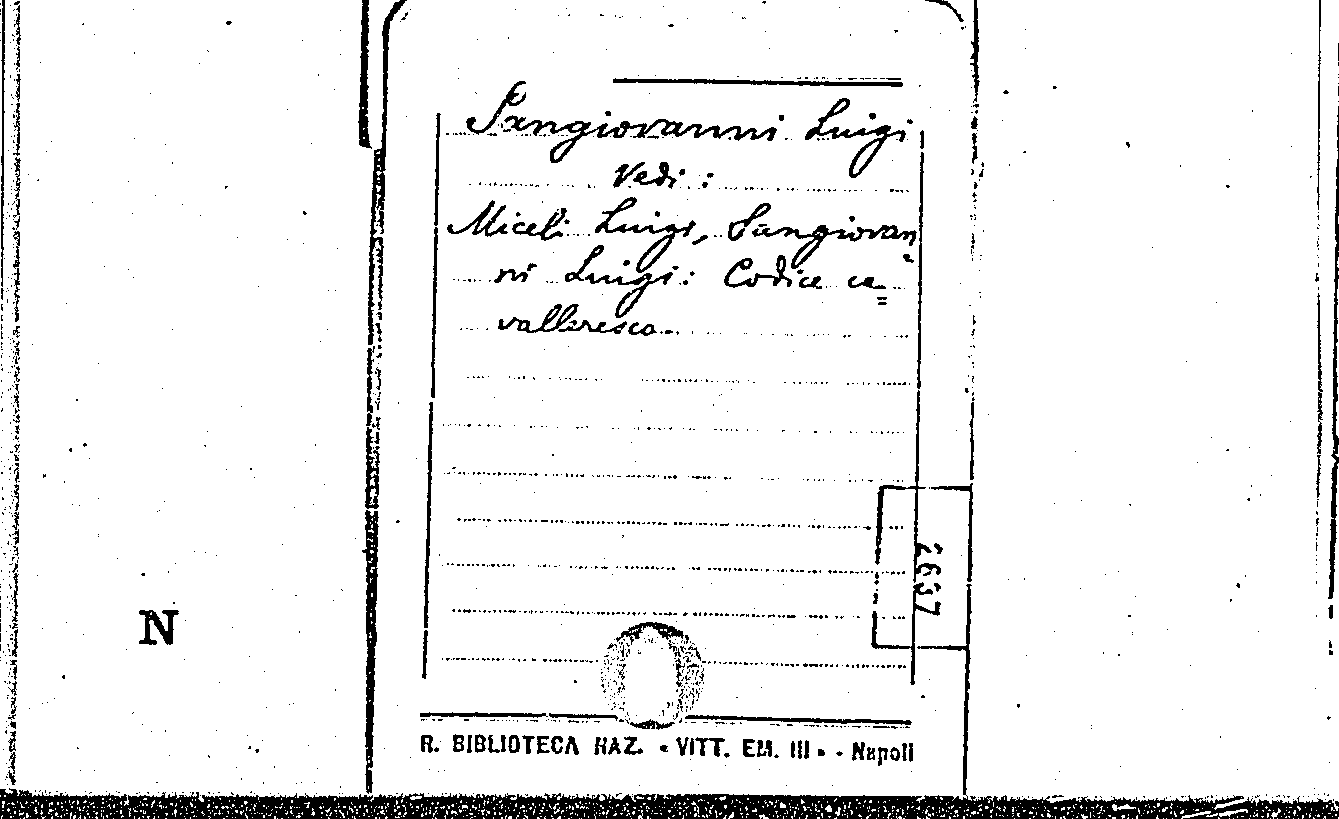 Sangiovanni Luigi
Vedi :
Miceli Luigi, Sangiovan
ni Luigi: Codice ca=
valleresco.
2637
N
R. BIBLIOTECA NAZ. « VITT. EM. III » - Napoli